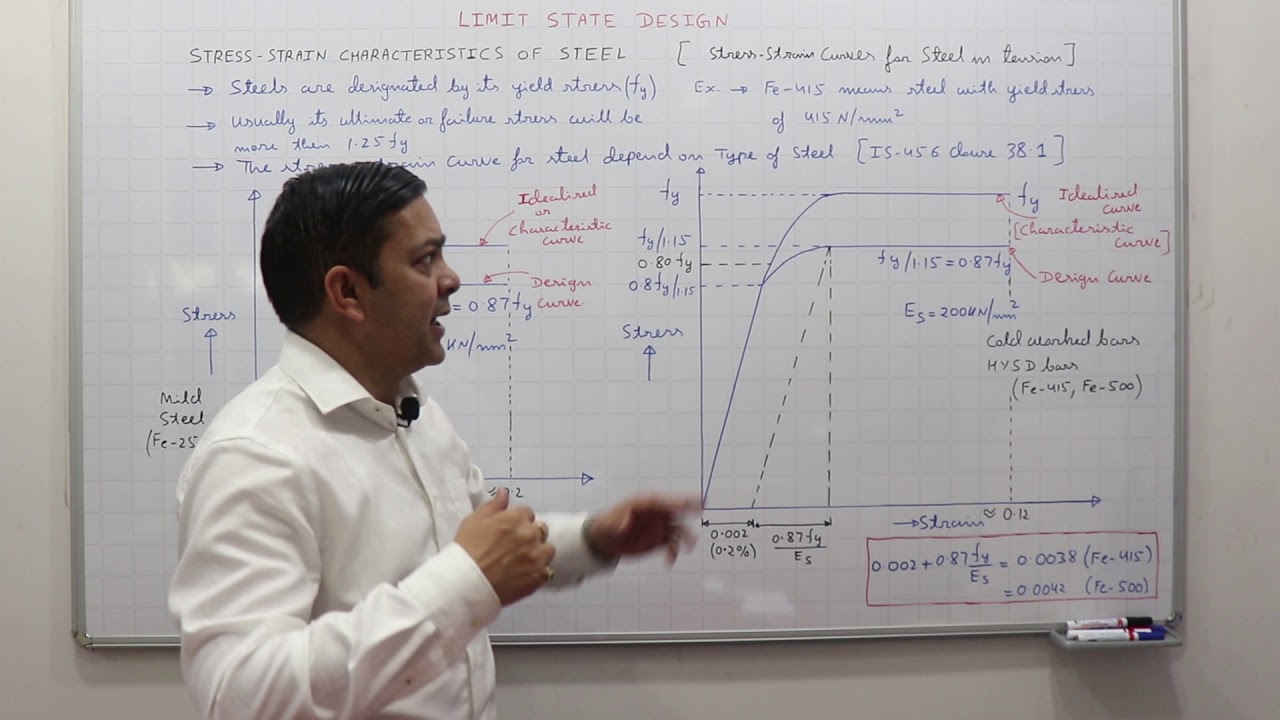 LIMIT STATE DESIGN
STRESS-STRAIN CHARACTERISTICS OF STEEL [ Stress-Strain Curves for Steel in tension]
→ Steels are designated by its yield stress (fy) Ex. → Fe-415 means steel with yield stress
of 415 N/mm²
→ usually its ultimate or failure stress will be
more then 1.25 fy
→ The strain Curve for steel depend on Type of Steel [IS-456 clause 38.1]
Idealized
or
Characteristic
curve
Design
Curve
= 0.87fy
KN/mm²
Stress
Mild
Steel
(Fe-25
0.2
fy
fy/1.15
0.80 fy
0.8fy/1.15
Stress
fy
Idealized
Curve
[Characteristic
curve]
fy/1.15 = 0.87fy
Design Curve
Es = 200KN/mm²
Cold worked bars
HYSD bars
(Fe-415, Fe-500)
0.002
(0.2%)
0.87fy
Es
→Strain
≈ 0.12
0.002 + 0.87fy/Es = 0.0038 (Fe-415)
= 0.0042 (Fe-500)